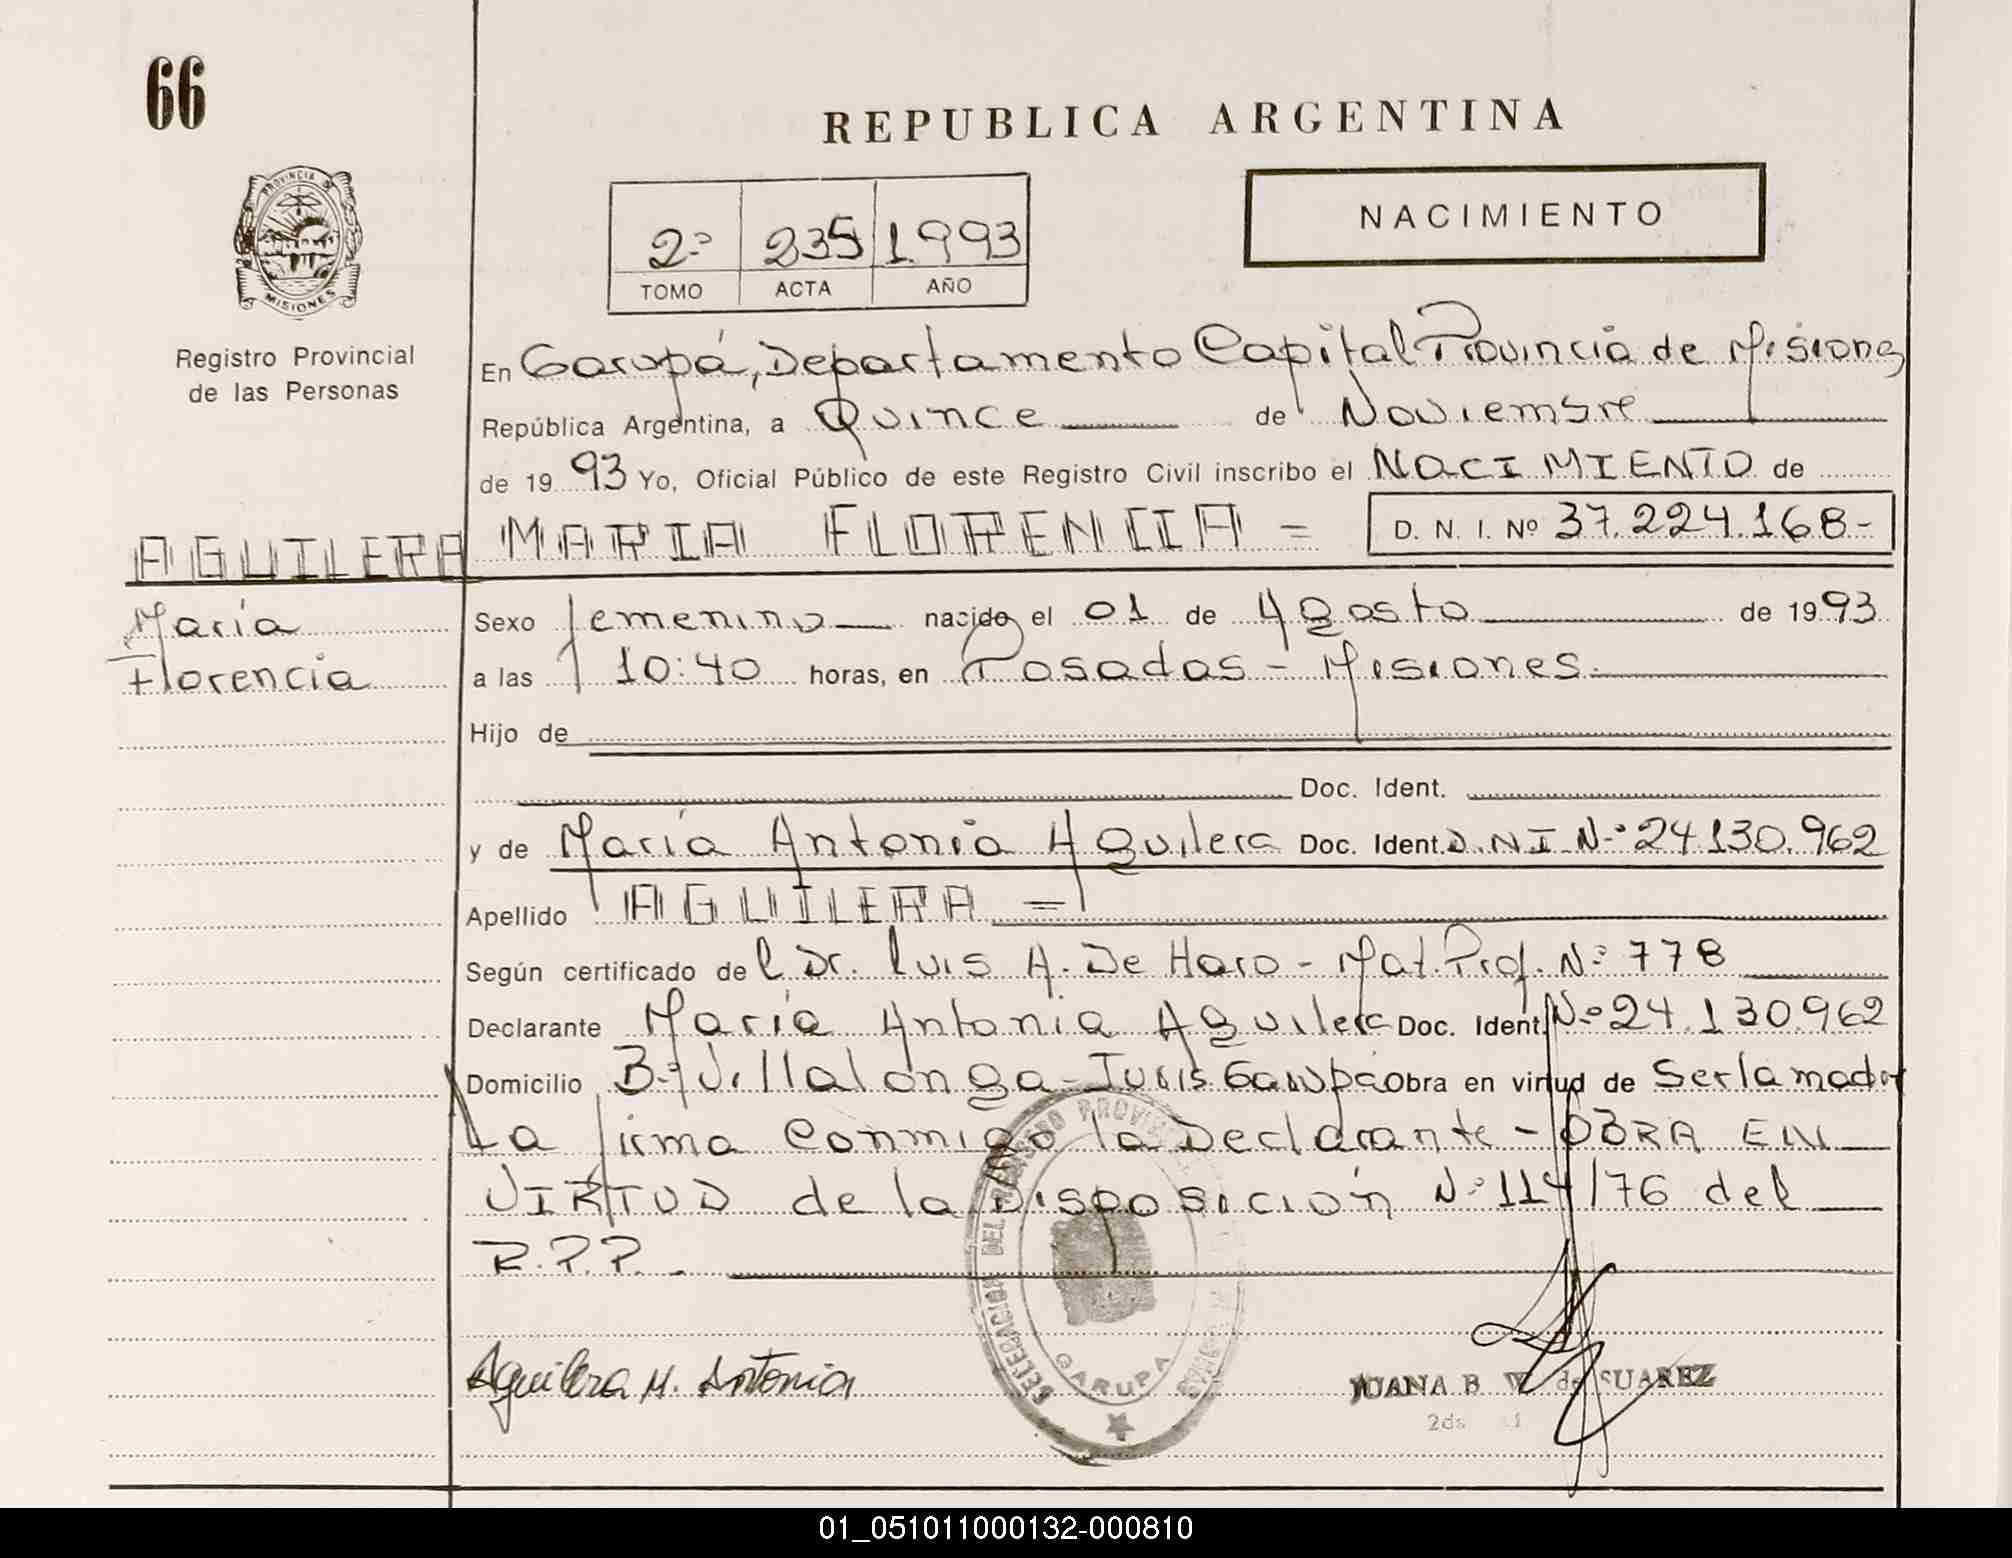 66
REPUBLICA ARGENTINA
PROVINCIA DE
MISIONES
Registro Provincial
de las Personas
2º 235 1993
TOMO ACTA AÑO
NACIMIENTO
En Garupá, Departamento Capital Provincia de Misiones
República Argentina, a Quince de Noviembre
de 1993 Yo, Oficial Público de este Registro Civil inscribo el NACIMIENTO de
AGUILERA MARIA FLORENCIA = D. N. I. Nº 37.224.168-
María
Florencia
Sexo femenino nacido el 01 de Agosto de 1993
a las 10:40 horas, en Posadas - Misiones.
Hijo de
Doc. Ident.
y de María Antonia Aguilera Doc. Ident. D.N.I. Nº 24.130.962
Apellido AGUILERA =
Según certificado del Dr. Luis A. De Haro - Mat. Prof. Nº 778
Declarante María Antonia Aguilera Doc. Ident. Nº 24.130.962
Domicilio Bº Villalonga - Juris. Garupá Obra en virtud de Ser la madre
La firma conmigo la Declarante - OBRA EN
VIRTUD de la Disposición Nº 114/76 del
R.P.P.
DELEGACION DEL REGISTRO PROVINCIAL
GARUPA
Aguilera M. Antonia
JUANA B V de SUAREZ
01_051011000132-000810